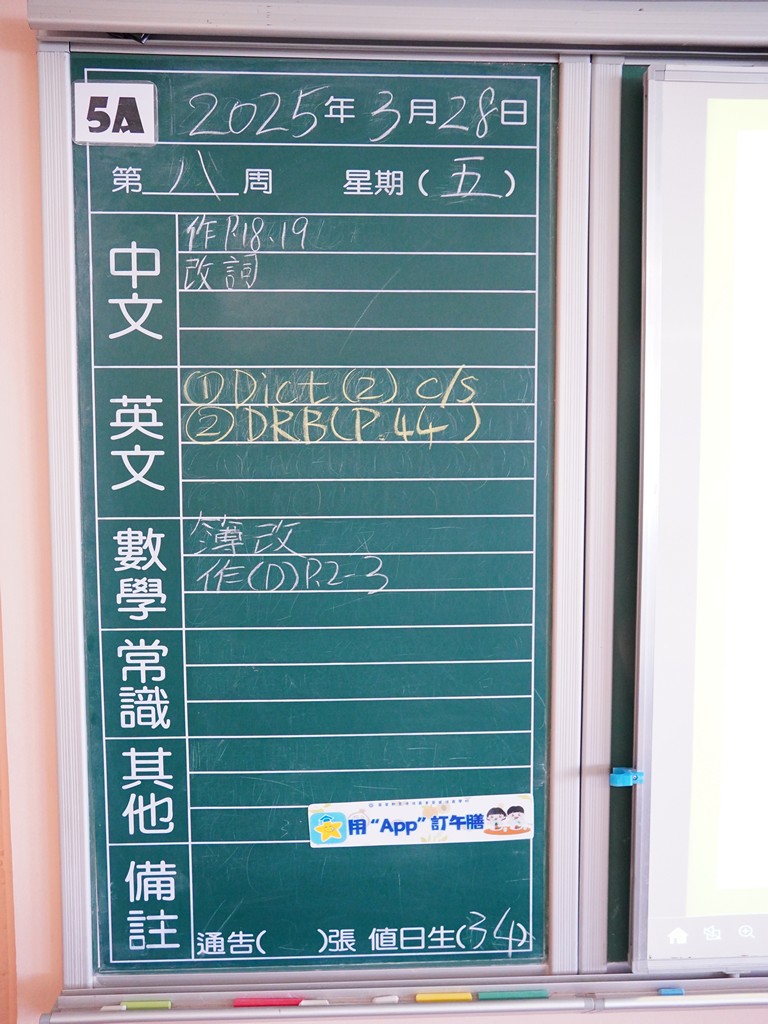 5A
2025年3月28日
第八周 星期(五)
中文
作P.18、19
改詞
英文
①Dict (2) c/s
②DRB(P.44)
數學
簿改
作(D)P.2-3
常識
其他
用 “App” 訂午膳
備註
通告( )張 值日生(34)